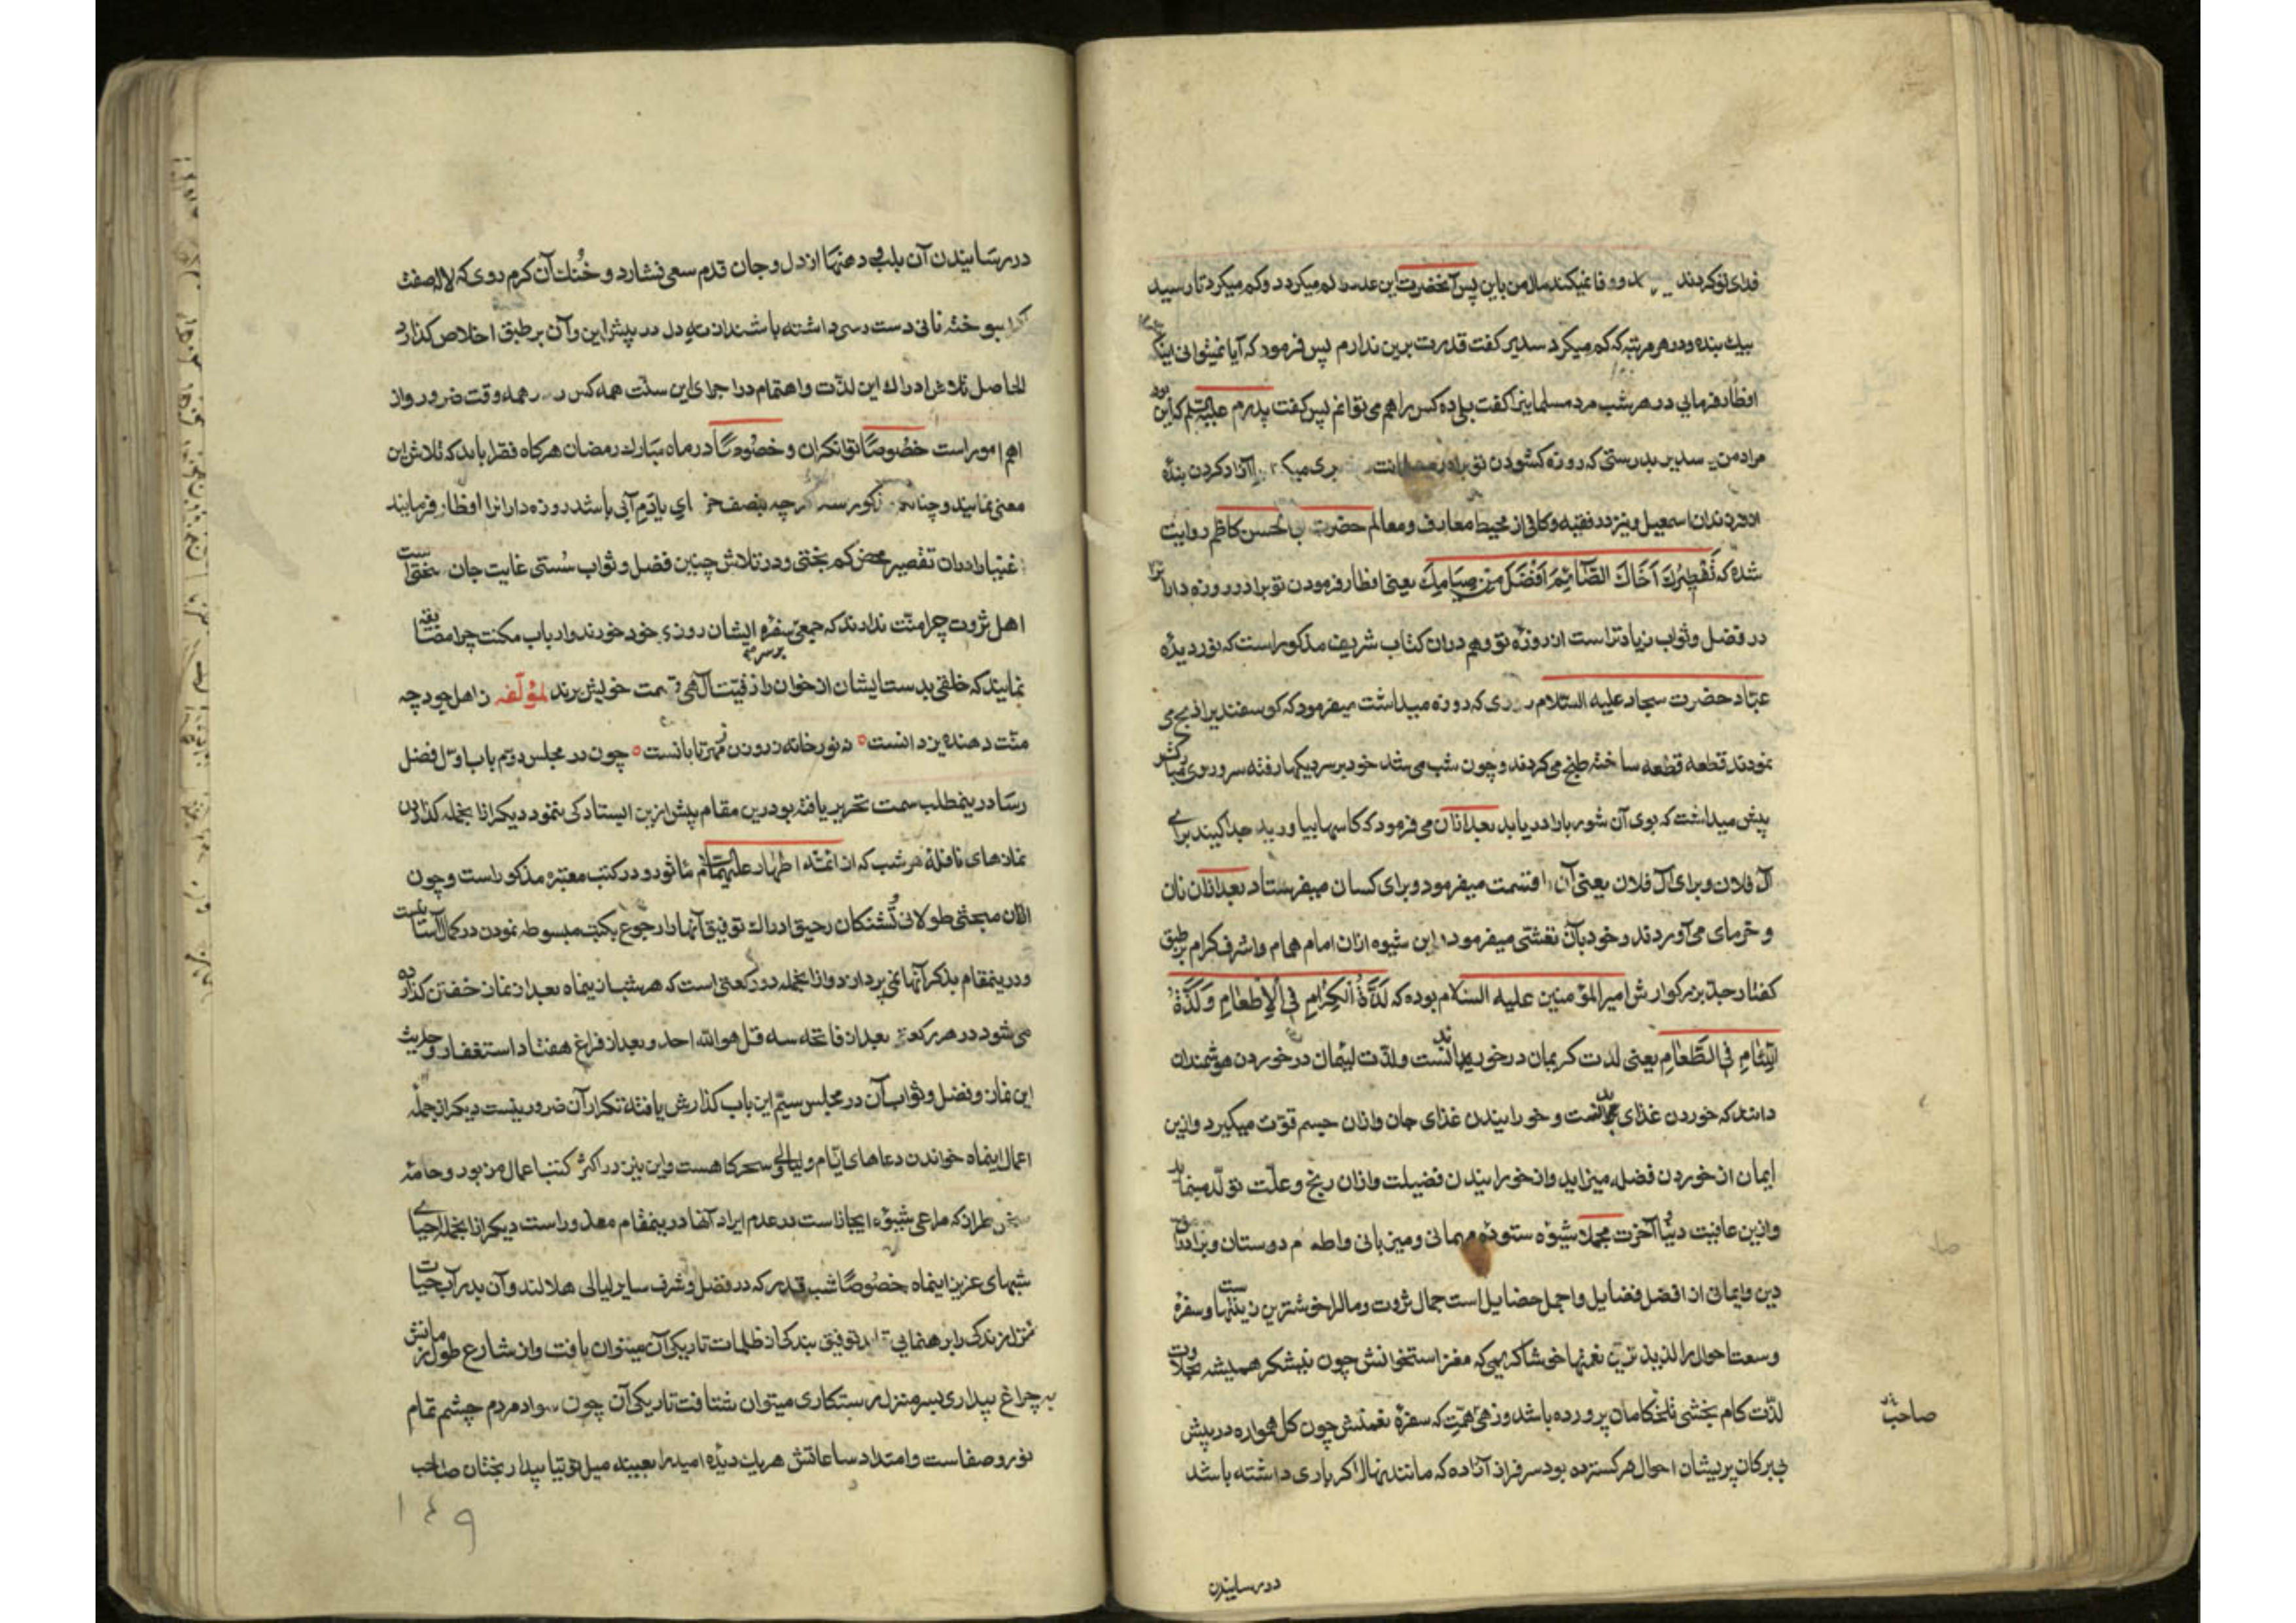 فدای تو کردند و وفا نمیکند مال من باین پس آنحضرت این عدد را کم میکرد و کم میکرد تا رسید
بیك بنده و در هر مرتبه که کم میکرد سدیر کفت قدرت برین ندارم پس فرمود که آیا نمیتوانی اینکه
افطار فرمایی در هر شب مرد مسلمانیرا کفت بلی ده کس را هم می توانم پس کفت پدرم علیه السلم که این بود
مراد من سدیر بدرستی که روزه کشودن تو برادر آزاد کردن بنده
از فرزندان اسمعیل و نیز در فقیه و کافی از محیط معارف و معالم حضرت ابالحسن کاظم روایت
شده که تَفْطِیرُكَ اَخَاكَ الصَّائِمَ اَفْضَلُ مِنْ صِیَامِكَ یعنی افطار فرمودن تو برادر روزه دار ترا
در فضل و ثواب زیادتر است از روزه تو و هم در ان کتاب شریف مذکور است که نور دیده
عبّاد حضرت سجاد علیه السّلام روزی که روزه میداشت میفرمود که کوسفندیرا ذبح می
نمودند قطعه قطعه ساخته طبخ می کردند و چون شب می شد خود بر سر دیکها رفته سر و روی مبارکش
پیش میداشت که بوی آن شوربا را دریابد بعد ازان می فرمود که کاسها بیاورید جدا کنید برای
آل فلان و برای آل فلان یعنی آنرا قسمت میفرمود و برای کسان میفرستاد بعد ازان نان
و خرمای می آوردند و خود بآن تعشّی میفرمود و این شیوه ازان امام همام و اشرف کرام بر طبق
کفتار جدّ بزرکوارش امیر المؤمنین علیه السّلام بوده که لَذَّةُ الْکِرَامِ فِی الْاِطْعَامِ وَ لَذَّةُ
اللِّئَامِ فِی الطَّعَامِ یعنی لذت کریمان در خورانیدنست و لذّت لئیمان در خوردن هوشمندان
دانند که خوردن غذای بدنست و خورانیدن غذای جان و ازان جسم قوّت میکیرد و ازین
ایمان از خوردن فضله میزاید و از خورانیدن فضیلت و ازان رنج و علّت تولّد مینماید
و ازین عافیت دنیا و آخرت مجملا شیوه ستوده مهمانی و میزبانی و اطعام دوستان و برادران
دین و ایمانی از افضل فضایل و اجمل خصایل است جمال ثروت و مال را خوشترین زینتهاست و سفره
وسعت احوال را لذیذترین نعمتها خوشا کریمی که مغز استخوانش چون نیشکر همیشه بحلاوت
لذّت کام بخشی تلخکامان پرورده باشد و زهی همّت که سفره نعمتش چون کل همواره در پیش
صاحب
بی برکان پریشان احوال هر کسترده بود سرفراز آزاده که مانند نهال اکر باری داشته باشد
در رسانیدن
در رسانیدن آن بلب دهنها از دل و جان قدم سعی فشارد و خُنك آن کرم روی که لاله صفت
اکر سوخته نانی دست رسی داشته باشد از ته دل در پیش این و آن بر طبق اخلاص کذارد
الحاصل تلاش ادراك این لذّت و اهتمام در اجرای این سنّت همه کس را در همه وقت ضرور و از
اهم امور است خصُوصًا توانکران و خصُوصًا در ماه مبارك رمضان هرکاه فقرا باید که تلاش این
معنی نمایند و چنانکه مذکور شد اکر چه بنصف خرمای یا دَم آبی باشد روزه داران را افطار فرمایند
اغنیا را در ان تقصیر محض کم بختی و در تلاش چنین فضل و ثواب سُستی غایت جان سختی است
اهل ثروت چرا منّت ندارند که جمعی بر سر سفره ایشان روزی خود خورند و ارباب مکنت چرا مضایقه
نمایند که خلقی بدست ایشان از خوان رازقیت آلهی قسمت خویش برند لمؤلّفه ز اهل جود چه
منّت دهنده یزدانست ه نور خانه ز روزن ز مهر تابانست ه چون در مجلس دوّم باب اوّل فصل
رسا درینمطلب سمت تحریر یافته بود درین مقام پیش ازین ایستادکی ننمود دیکر ازانجمله کذاردن
نمازهای نافله هر شب که از ائمّه اطهار علیهم السلم مأثور و در کتب معتبره مذکور است و چون
الآن مبحثی طولانی تُشنکان رحیق ادراك توفیق آنها را رجوع بکتب مبسوطه نمودن در کمال آسانیست
و درینمقام بذکر آنها نمی پردازد و ازانجمله دو رکعتی است که هر شب از ینماه بعد از نماز خفتن کذارده
می شود در هر رکعتی بعد از فاتحه سه قل هو الله احد و بعد از فراغ هفتاد استغفار و حدیث
این نماز و فضل و ثواب آن در مجلس سیّم این باب کذارش یافته تکرار آن ضرور نیست دیکر ازجمله
اعمال اینماه خواندن دعاهای ایّام و لیالی و سحرکاهست و این نیز در اکثر کتب اعمال مزبور و خامه
سخن طراز که مراعی شیوه ایجاز است در عدم ایراد آنها درینمقام معذور است دیکر ازانجمله احیای
شبهای عزیز اینماه خصُوصًا شب قدر که در فضل و شرف سایر لیالی هلالند و آن بدر آب حیات
منزل زندکی را برهنمایی توفیق بندکی از ظلمات تاریکی آن میتوان یافت و از شارع طول زمانش
به چراغ بیداری بسر منزل رستکاری میتوان شتافت تاریکی آن چون سواد مردم چشم تمام
نور و صفاست و امتداد ساعاتش هر یك دیده امید را بعینه میل توتیا بیدار بختان صاحب
۱۴۹